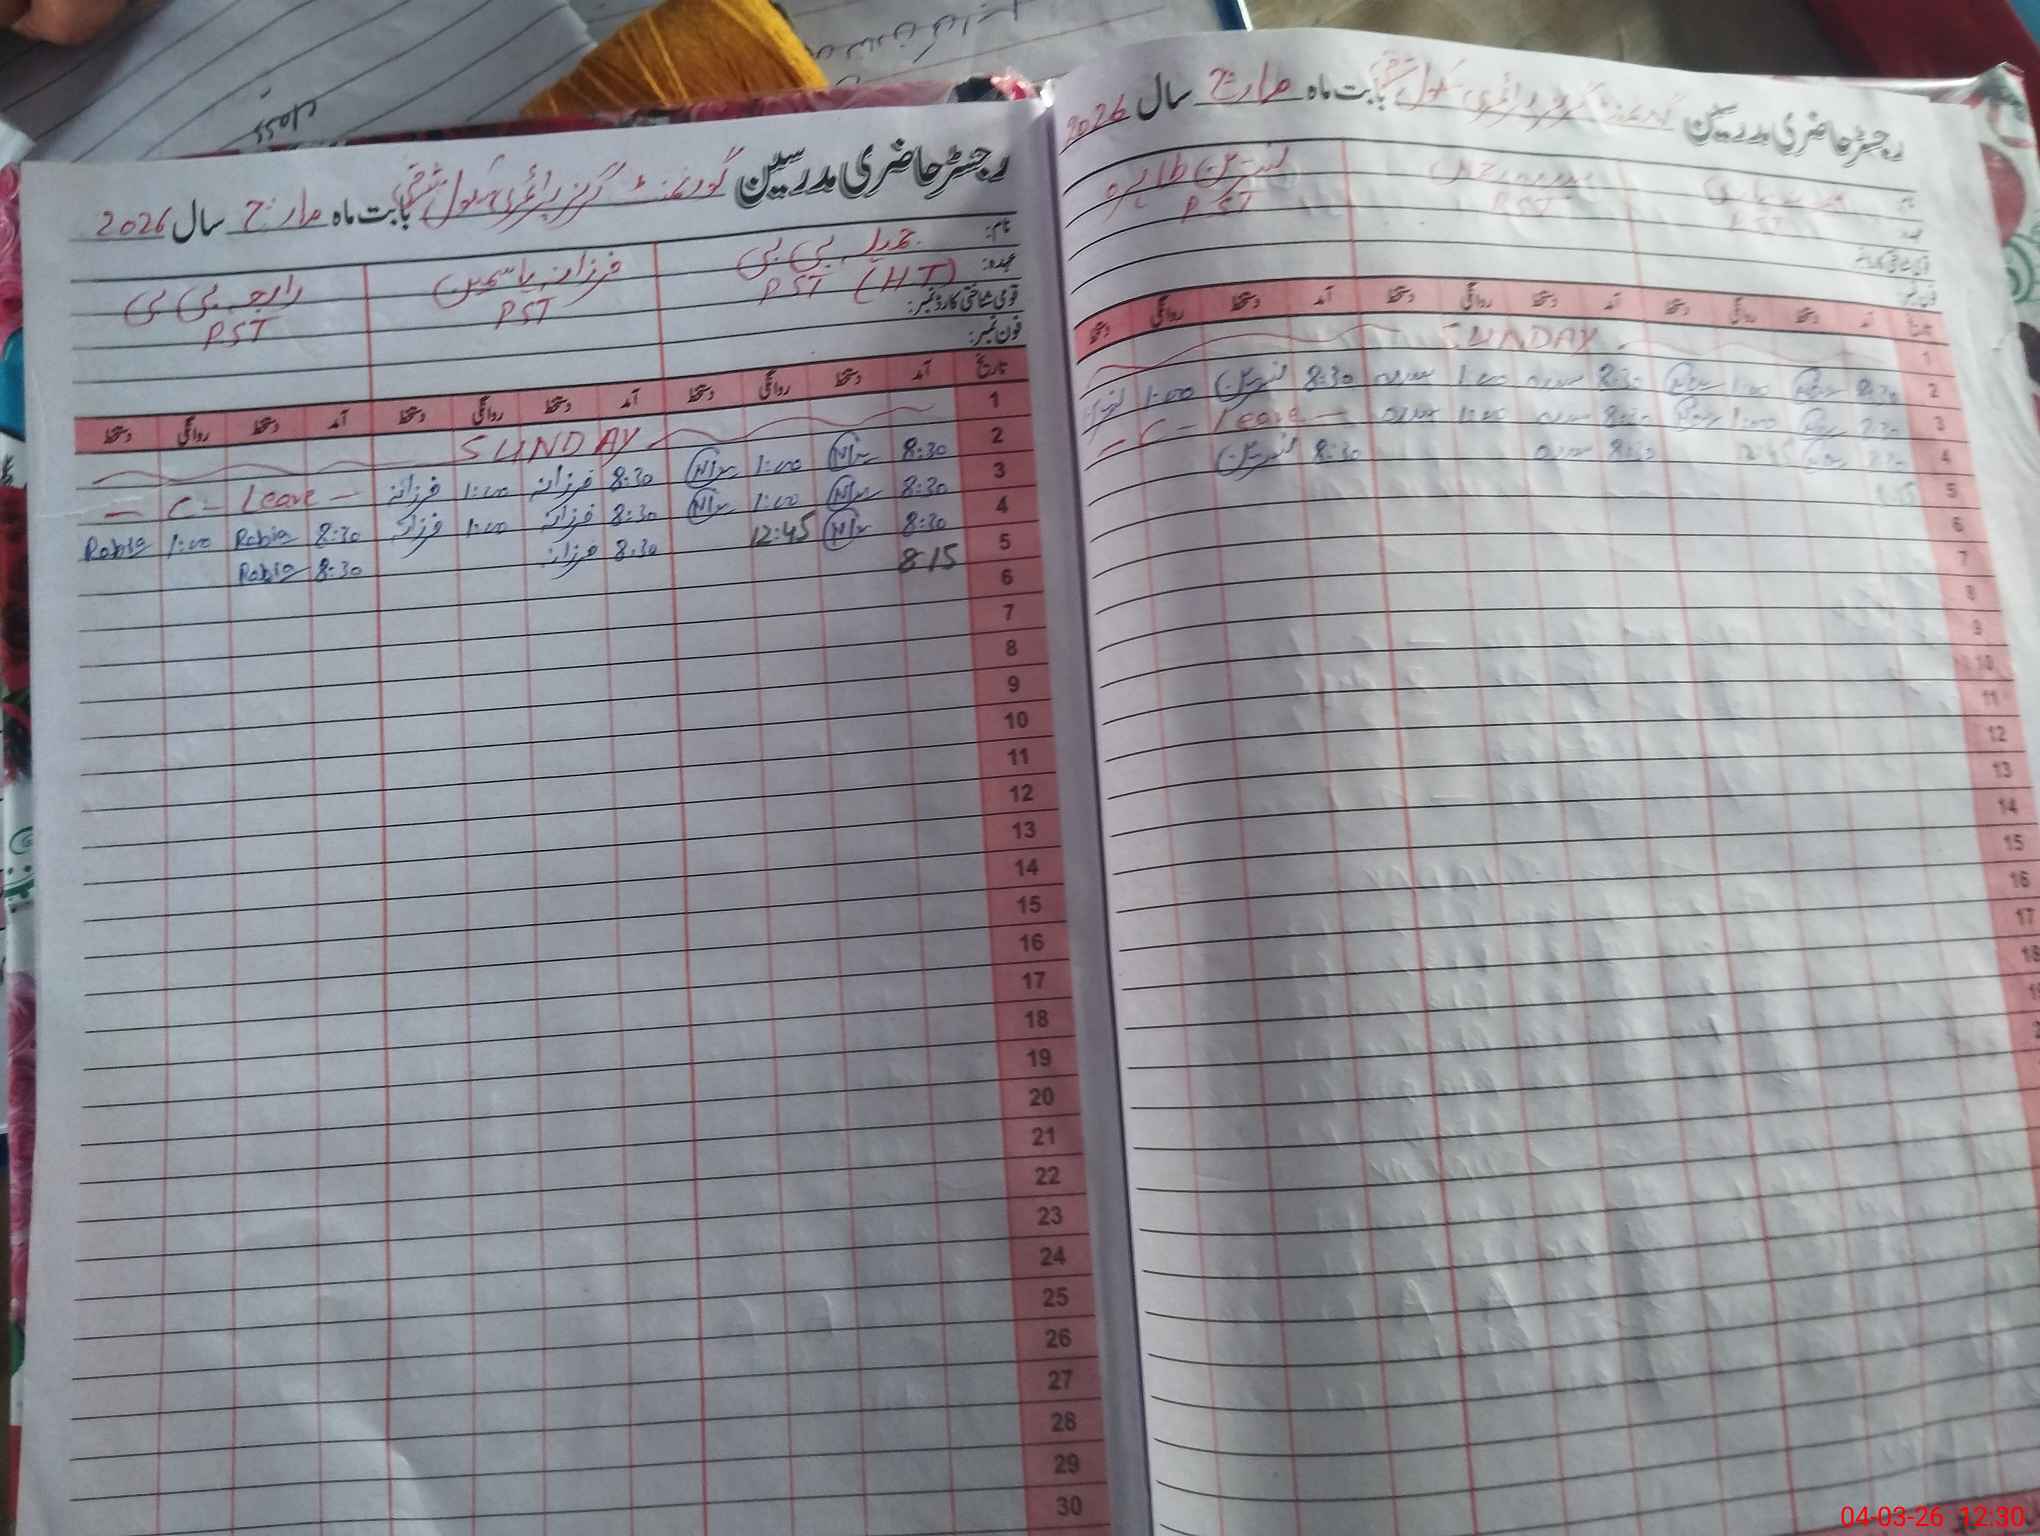 رجسٹر حاضری مدرسین گورنمنٹ گرلز پرائمری سکول بابت ماہ مارچ سال 2026
نام: جمیلہ بی بی فرزانہ یاسمین رابعہ بی بی
عہدہ: PST (HT) PST PST
قومی شناختی کارڈ نمبر:
فون نمبر:
تاریخ آمد دستخط روانگی دستخط آمد دستخط روانگی دستخط آمد دستخط روانگی دستخط
1 SUNDAY
2 8:30 1:00 8:30 فرزانہ 1:00 فرزانہ — C - Leave —
3 8:30 1:00 8:30 فرزانہ 1:00 فرزانہ 8:30 Rabia 1:00 Rabia
4 8:30 12:45 8:30 فرزانہ 8:30 Rabia
5 8:15
6
7
8
9
10
11
12
13
14
15
16
17
18
19
20
21
22
23
24
25
26
27
28
29
30
رجسٹر حاضری مدرسین گورنمنٹ گرلز پرائمری سکول بابت ماہ مارچ سال 2026
نسرین طاہرہ
PST PST PST
تاریخ آمد دستخط روانگی دستخط آمد دستخط روانگی دستخط آمد دستخط روانگی دستخط
1 SUNDAY
2 8:30 1:00 8:30 1:00 8:30 نسرین 1:00 نسرین
3 8:30 1:00 8:30 1:00 — C - Leave —
4 8:30 12:45 8:30 8:30 نسرین
5 8:15
6
7
8
9
10
11
12
13
14
15
16
17
18
04-03-26 12:30